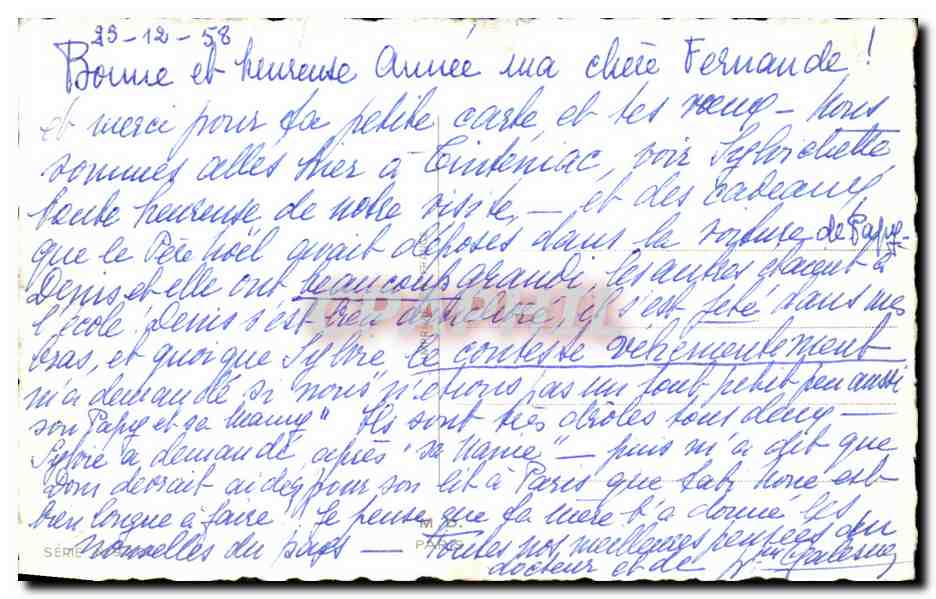 23-12-58
Bonne et heureuse Année ma chère Fernande !
et merci pour ta petite carte, et tes vœux - Nous
sommes allés hier à Tinténiac, voir Sylvichette
toute heureuse de notre visite, - et des cadeaux,
que le Père Noël avait déposés dans la voiture de Papy -
Denis et elle ont beaucoup grandi, les autres étaient à
l'école ! Denis s'est très , il s'est jeté dans mes
bras, et quoique Sylvie le conteste véhémentement
m'a demandé si nous "n'étions pas un tout petit peu aussi
son Papy et sa Mamy" Ils sont très drôles tous deux -
Sylvie a demandé après "sa Nanie" - puis m'a dit que
Dom devrait aider pour son lit à Paris que
bien longue à faire ! Je pense que ta mère t'a donné les
nouvelles du pays - Toutes nos meilleures pensées du
docteur et de
SÉRIE
M. D.
PARIS